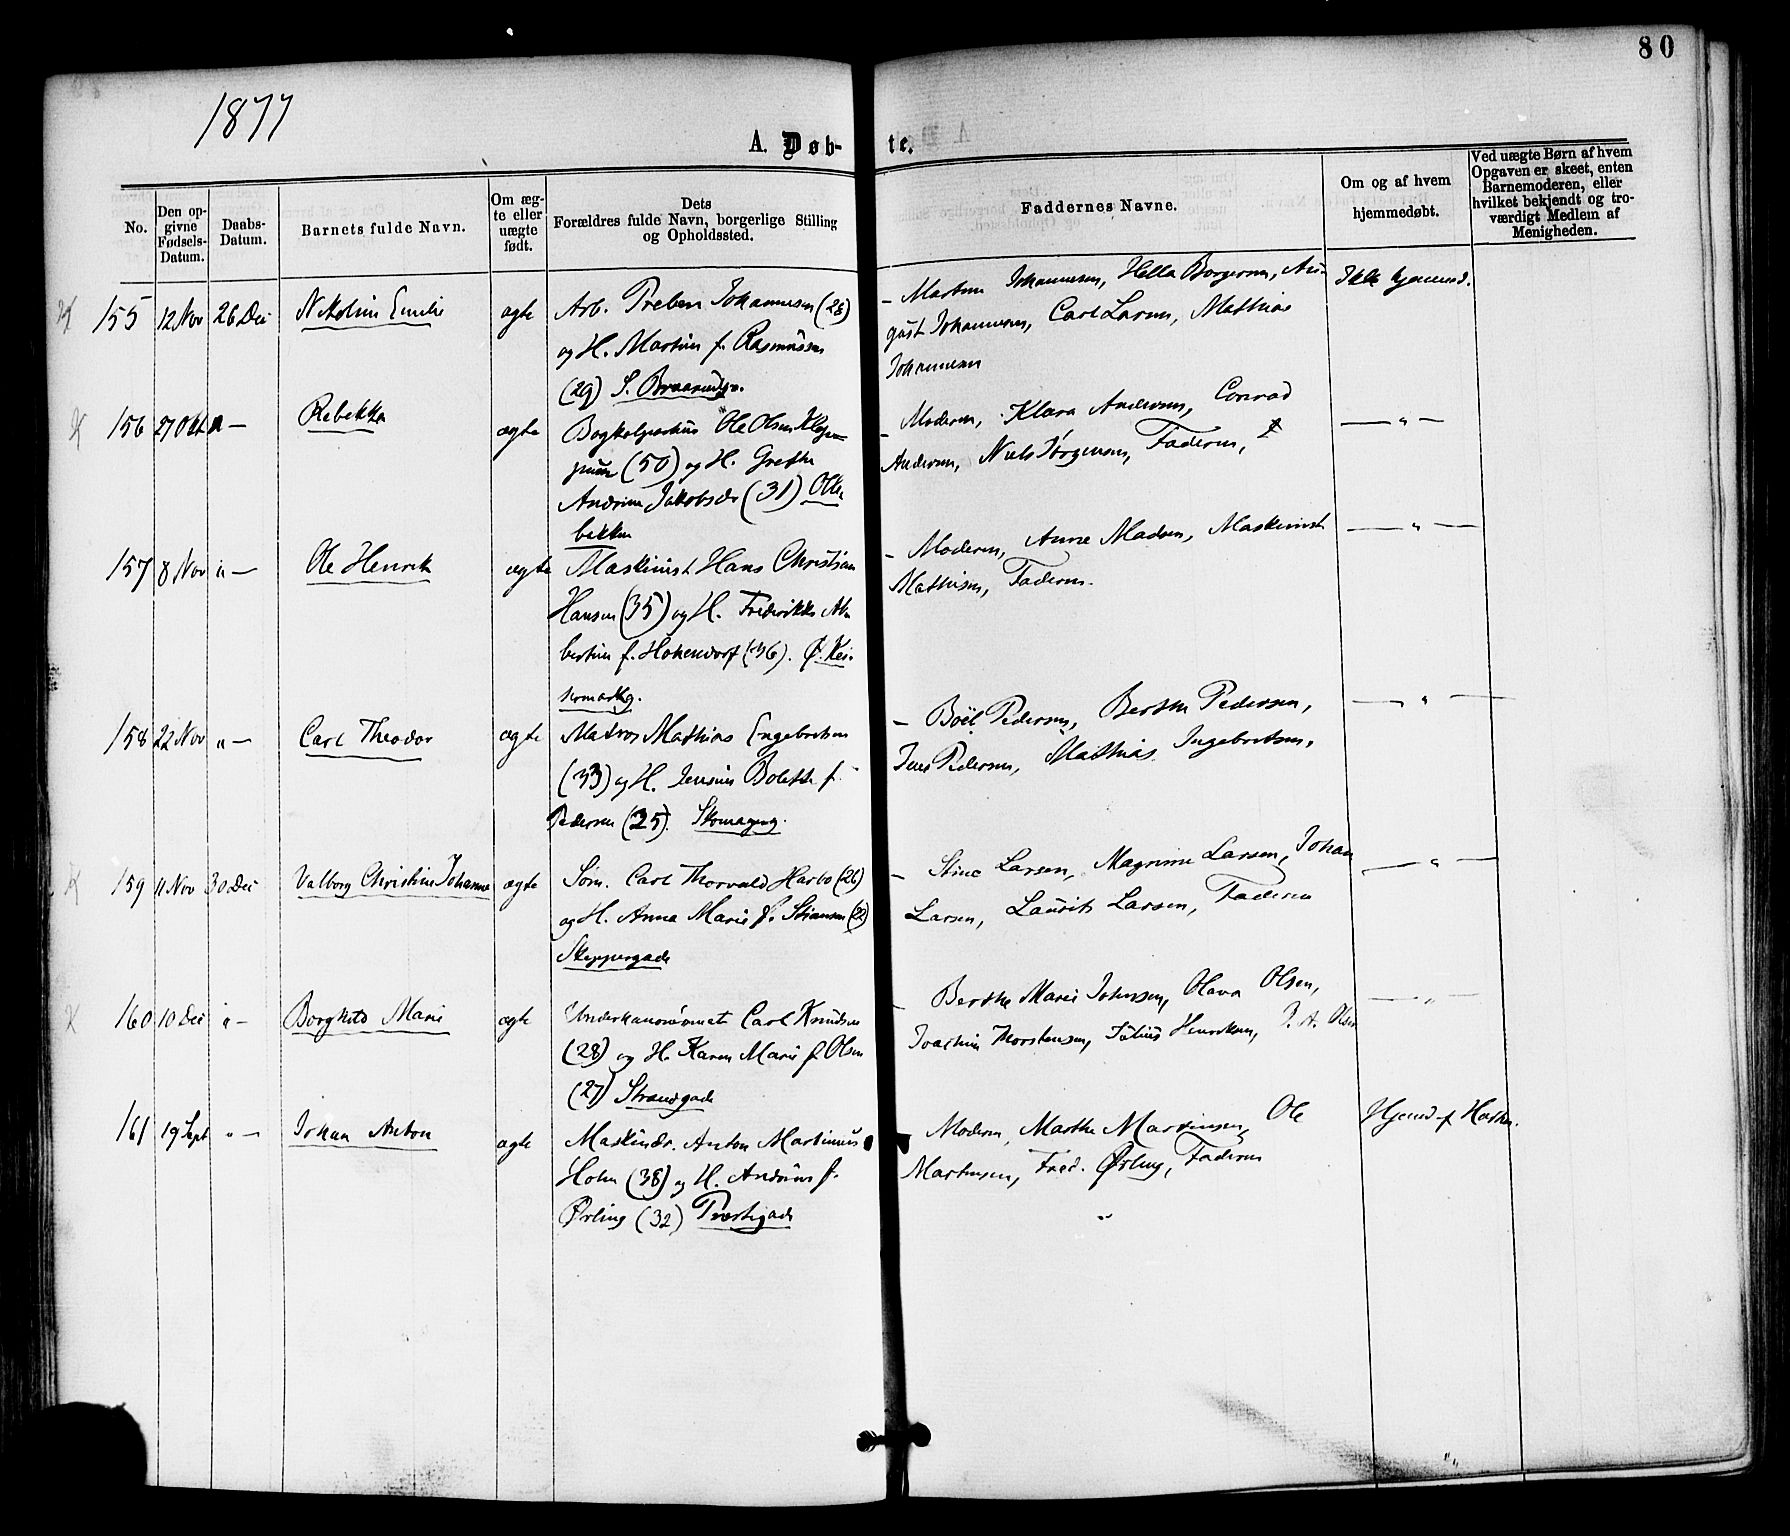 80
1877
A. Døb- te.
No.
Den op-
givne
Fødsels-
Datum.
Daabs-
Datum.
Barnets fulde Navn.
Om æg-
te eller
uægte
født.
Dets
Forældres fulde Navn, borgerlige Stilling
og Opholdssted.
Faddernes Navne.
Om og af hvem
hjemmedøbt.
Ved uægte Børn af hvem
Opgaven er skeet, enten
Barnemoderen, eller
hvilket bekjendt og tro-
værdigt Medlem af
Menigheden.
155 12 Nov 26 Dec Nikoline Emilie ægte Arb. Preben Johannesen (28)
og H. Martine f. Rasmussen
(29) S.
– Martine Johannesen, Hella Borgersen, Au-
gust Johannesen, Carl Larsen, Mathias
Johannesen
Ikke hjemmed.
156 27 Okt " – Rebekka ægte Bogkolportør Ole Olsen
(50) og H. Grethe
Andrine Jakobsdr (31) Olle
bekken
– Moderen, Klara Andersen, Conrad
Andersen, Niels Jørgensen, Faderen,
— " —
157 8 Nov " – Ole Henrik ægte Maskinist Hans Christian
Hansen (35) og H. Frederikke Al-
bertine f. Hohendorf (36). Ø. Kei-
somarkg.
– Moderen, Anne Madsen, Maskinist
Mathisen, Faderen.
— " —
158 22 Nov " – Carl Theodor ægte Matros Mathias Engebretsen
(33) og H. Jensine Bolette f.
Pedersen (25). Skomagerg.
– Boël Pedersen, Berthe Pedersen,
Jens Pedersen, Mathias Ingebretsen.
— " —
159 11 Nov 30 Dec Valborg Christine Johanne ægte Søm. Carl Thorvald Harbo (26)
og H. Anna Marie f. Stiansen (22)
Skippergade
– Stine Larsen, Magrine Larsen, Johan
Larsen, Laurits Larsen, Faderen
— " —
160 10 Dec " – Borghild Marie ægte Underkanonérmat Carl Knudsen
(28) og H. Karen Marie f. Olsen
(27) Strandgade
– Berthe Marie Johnsen, Olava Olsen,
Joachim Thorstensen, Julius Henriksen, P. A. Olsen
— " —
161 19 Sept " – Johan Anton ægte Maskinar. Anton Martinius
Holm (38) og H. Andrine f.
Ørling (32) Præstegade
– Moderen, Marthe Martinsen, Ole
Martinsen, Fred. Ørling, Faderen
Hjemmed. af